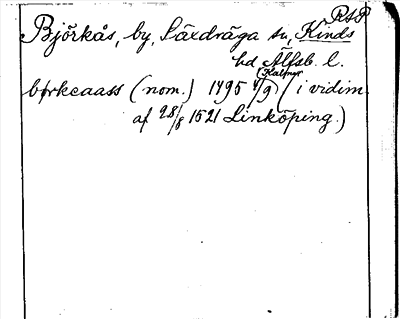 RAP
Björkås, by, Säxdräga sn, Kinds
hd Älfsb. l.
(Kalmar
børkeaass (nom.) 1495 4/9 (i vidim.
af 28/8 1521 Linköping.)